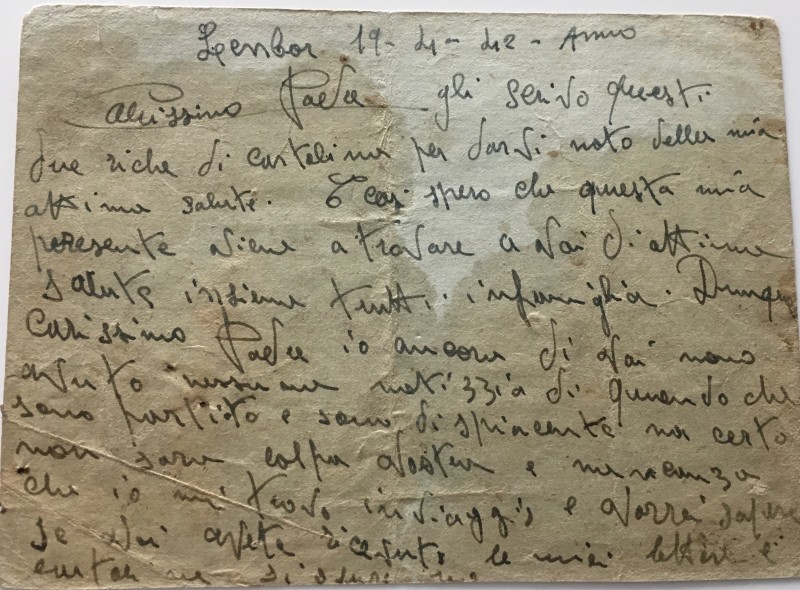 19-4-42- Anno
Carissimo Padre gli scrivo questi
due riche di cartolina per darvi noto della mia
attima salute. E cosi spero che questa mia
peresente viene a trovare a voi di attima
salute insieme tutti. infamiglia. Dunque
Carissimo Padre io ancora di voi nono
avuto nessuna notizzia di quando che
sono partito e sono dispiacente ma certo
non sara colpa vostra e
che io mi trovo inviaggio e vorrei sapere
se voi avete ricevuto le mie lettere e
cartoline